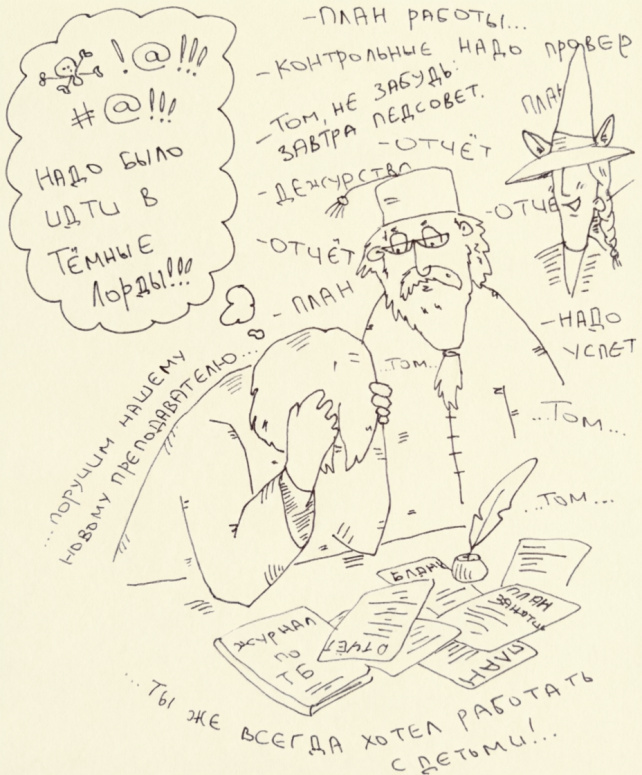 !@!!!
#@!!!
НАДО БЫЛО
ИДТИ В
ТЁМНЫЕ
ЛОРДЫ!!!
-ПЛАН РАБОТЫ...
-КОНТРОЛЬНЫЕ НАДО ПРОВЕР
-ТОМ, НЕ ЗАБУДЬ:
ЗАВТРА ПЕДСОВЕТ.
ПЛАН
-ОТЧЁТ
-ДЕЖУРСТВО
-ОТЧЁ
-ОТЧЁТ
-ПЛАН
-НАДО
УСПЕТ
...ПОРУЧИМ НАШЕМУ
НОВОМУ ПРЕПОДАВАТЕЛЮ...
...ТОМ...
...ТОМ...
...ТОМ...
БЛАНК
ПЛАН
ЗАНЯТИЯ
ЖУРНАЛ
ПО
ТБ
ОТЧЁТ
ПЛАН
...ТЫ ЖЕ ВСЕГДА ХОТЕЛ РАБОТАТЬ
С ДЕТЬМИ!...